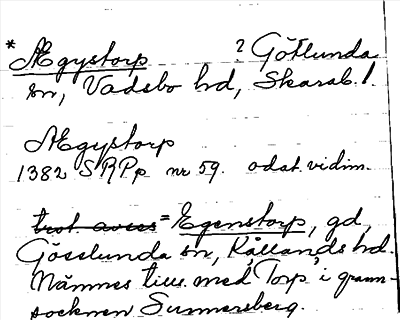 * Ægystorp ? Götlunda
sn, Vadsbo hd, Skarab. l.
Ægystorp
1382 SRPp nr 59. odat. vidim.
trol. avses = Egenstorp, gd,
Gösslunda sn, Kållands hd.
Nämnes tills. med Torp i grann-
socknen Sunnersberg.